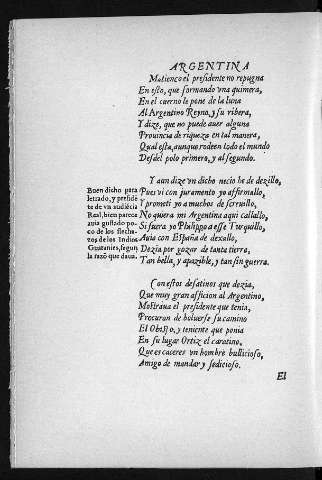 ARGENTINA
Matienço el presidente no repugna
En esto, que formando vna quimera,
En el cuerno le pone de la luna
Al Argentino Reyno, y su ribera,
Y dize, que no puede auer alguna
Prouincia de riqueza en tal manera,
Qual esta, aunque rodeen todo el mundo
Desdel polo primero, y al segundo.
Y aun dize vn dicho necio he de dezillo,
Pues vi con juramento yo affirmallo,
Y prometi yo a muchos de escreuillo,
No quiera mi Argentina aqui callallo,
Si fuera yo Philippo a esse Turquillo,
Auia con España de dexallo,
Dezia por gozar de tanta tierra,
Tan bella, y apazible, y tan sin guerra.
Buen dicho para
letrado, y presidẽ
te de vn audiẽcia
Real, bien parece
auia gustado po-
co de los flecha-
zos de los Indios
Guaranies, segun
la razõ que daua.
Con estos desatinos que dezia,
Que muy gran afficion al Argentino,
Mostraua el presidente que tenia,
Procuran de boluerse su camino
El Obispo, y teniente que ponia
En su lugar Ortiz el caratino,
Que es caceres vn hombre bullicioso,
Amigo de mandar y sedicioso.
El